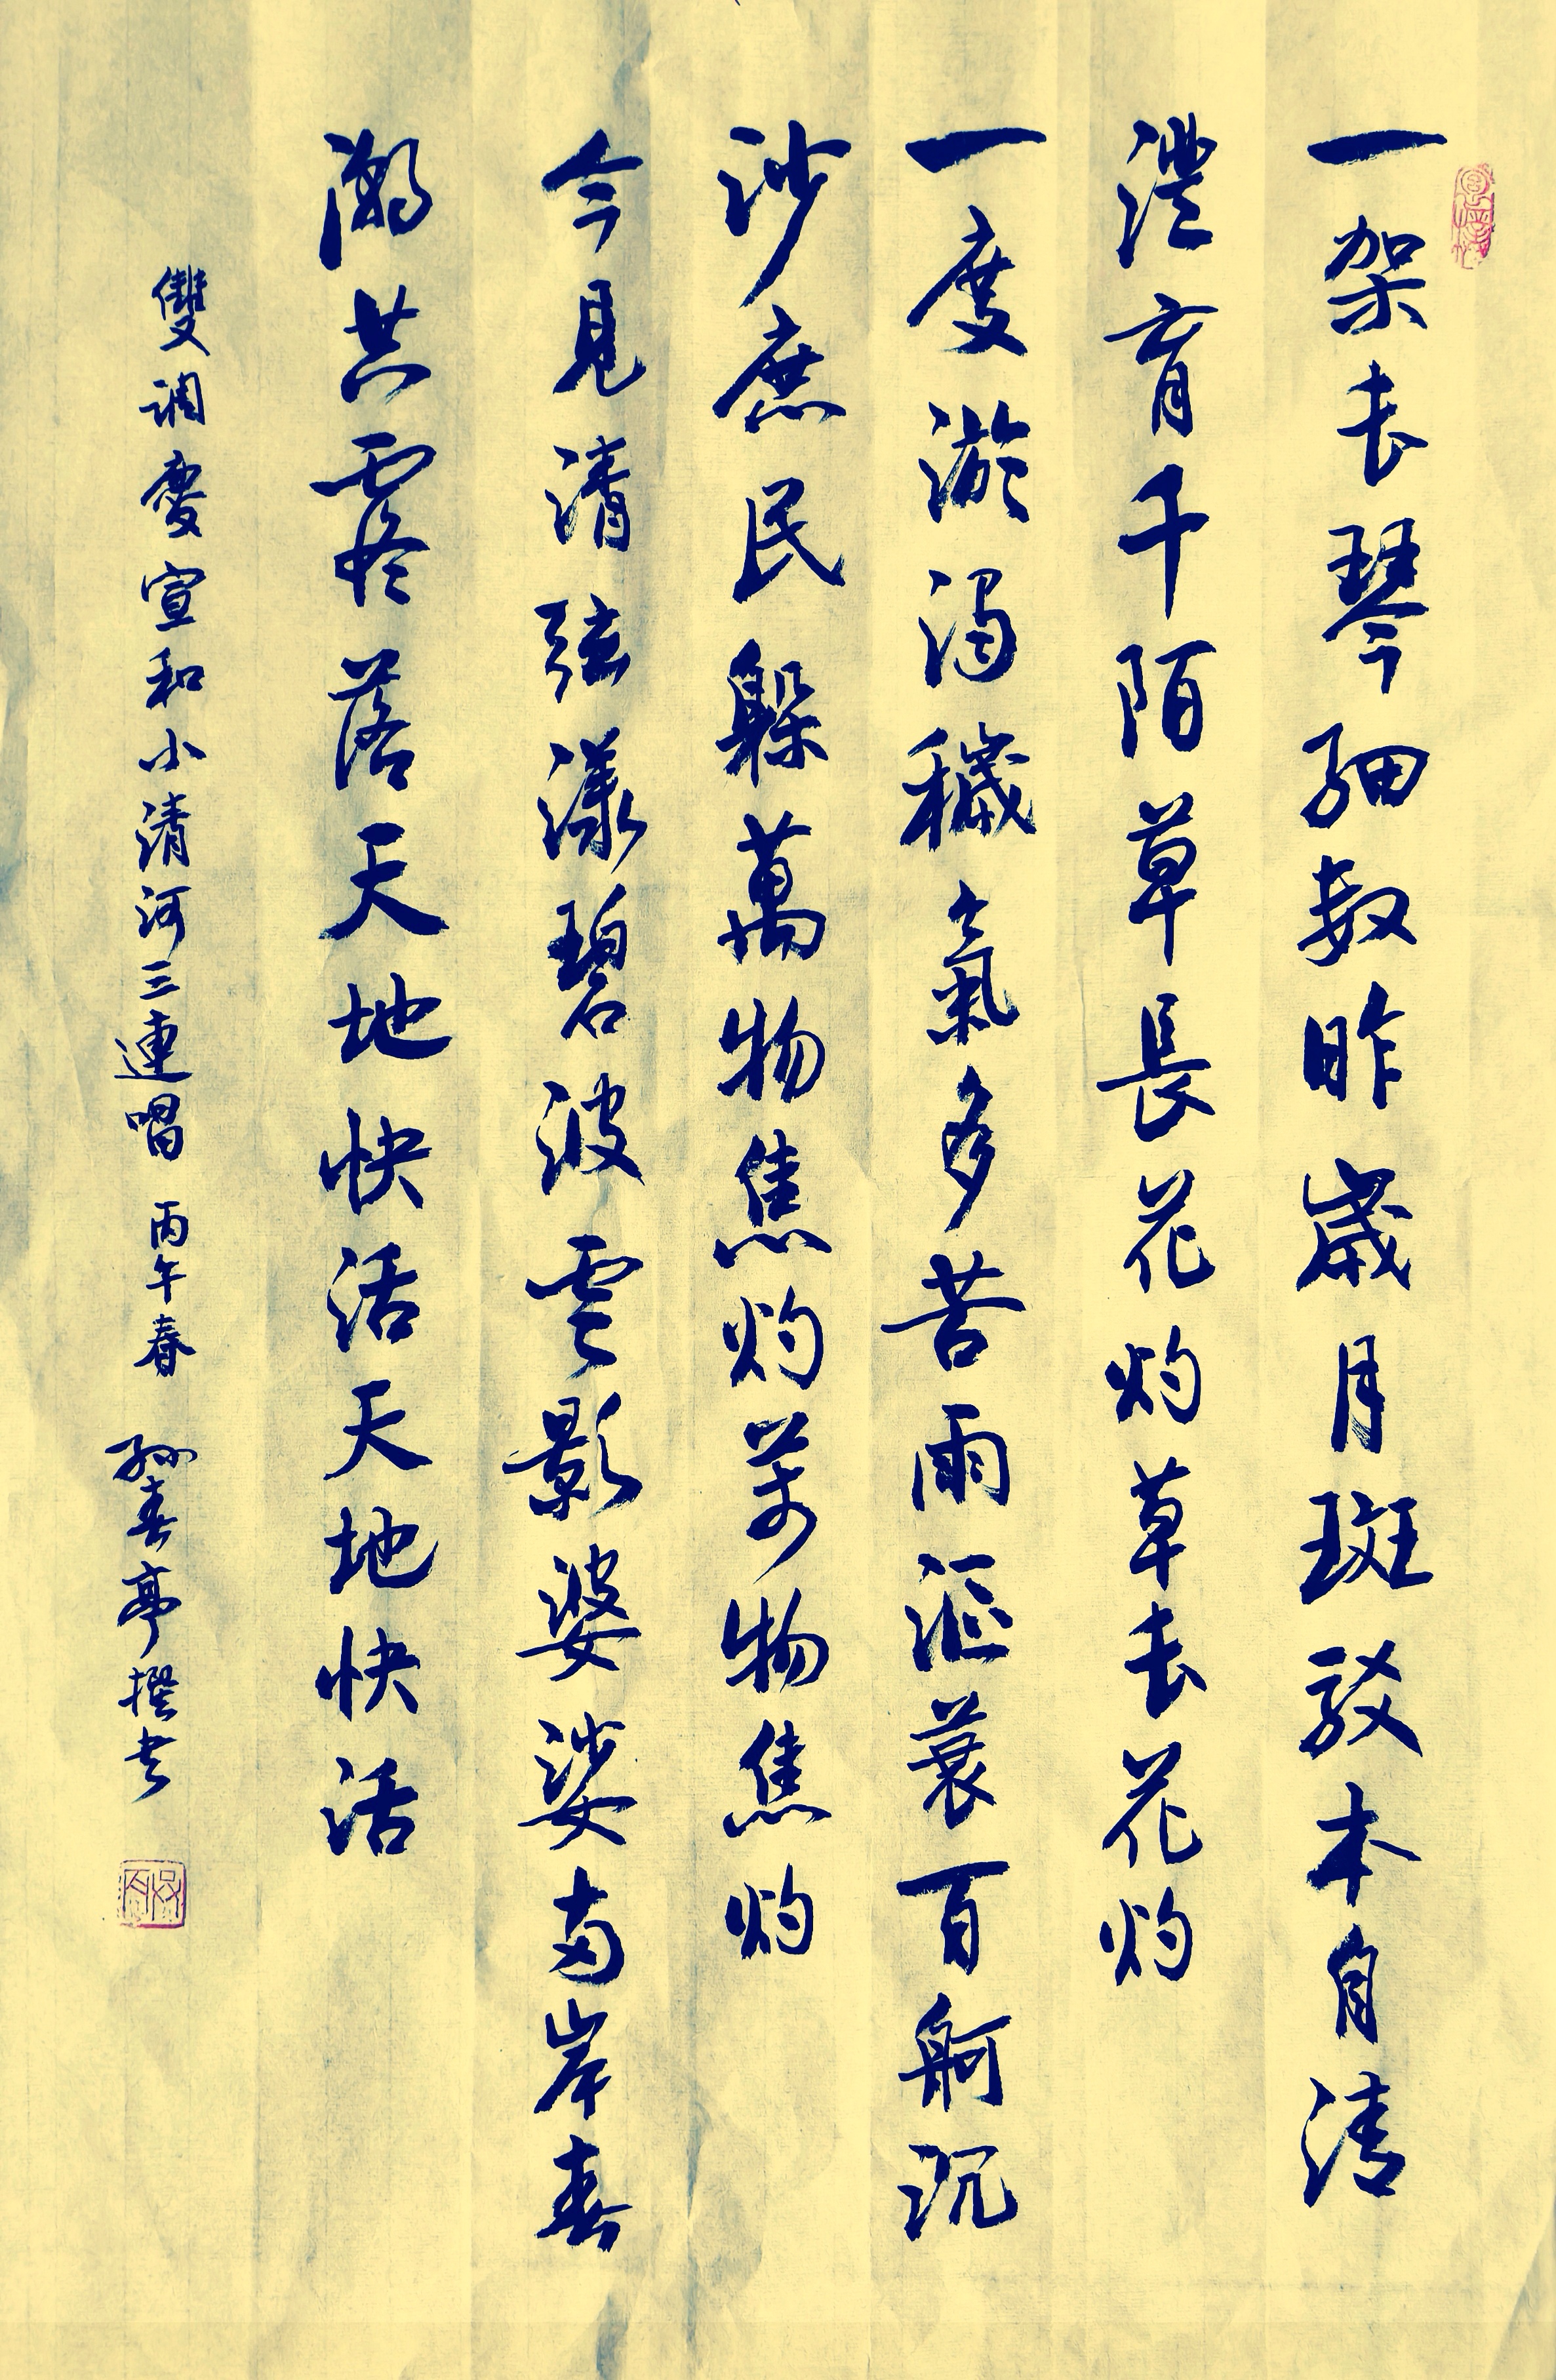 一架長琴細數昨歲月斑駁本自清
澧育千陌草長花灼草長花灼
一度淤濁穢氣多苦雨漚蓑百舸沉
沙庶民躲萬物焦灼萬物焦灼
今見清弦漾碧波雲影婆娑兩岸春
潮共零落天地快活天地快活
雙調慶宣和小清河三連唱 丙午春 孫春亭撰书